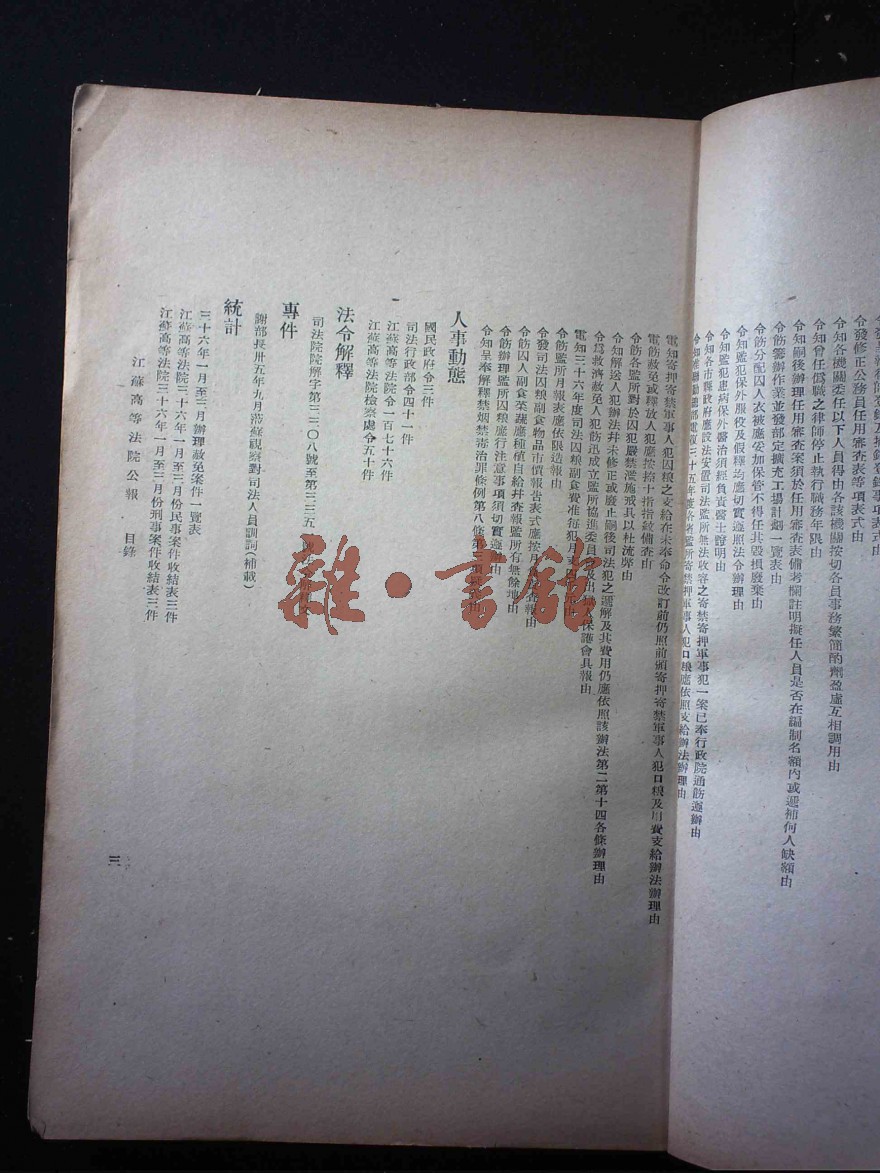 令發修正公務員任用審查表等項表式由
令知各機關委任以下人員得由各該機關按切各員事務繁簡酌劑盈虛互相調用由
令知曾任偽職之律師停止執行職務年限由
令知嗣後辦理任用審查案須於任用審查表備考欄註明擬任人員是否在編制名額內或遞補何人缺額由
令飭籌辦作業並發部定擴充工場計劃一覽表由
令飭分配囚人衣被應妥加保管不得任其毀損廢棄由
令知監犯保外服役及假釋均應切實遵照法令辦理由
令知監犯患病保外醫治須經負責醫士證明由
令知各市縣政府應設法安置司法監所無法收容之寄禁寄押軍事犯一案已奉行政院通飭遵辦由
三十五年度各省監所寄禁押軍事人犯口糧應依照支給辦法辦理由
電知寄押寄禁軍事人犯囚糧之支給在未奉命令改訂前仍照前頒寄押寄禁軍事人犯口糧及用費支給辦法辦理由
電飭赦免或釋放人犯應按捺十指指紋備查由
令飭各監所對於囚犯嚴禁濫施戒具以杜流弊由
令知解送人犯辦法幷未修正或廢止嗣後司法犯之遞解及其費用仍應依照該辦法第二第十四各條辦理由
令為救濟赦免人犯飭迅成立監所協進委員 及出 人保護會具報由
電知三十六年度司法囚糧副食費准每犯月支 由
令飭監所月報表應依限造報由
令發司法囚糧副食物品市價報告表式應按月 報由
令飭囚人副食菜蔬應種植自給幷查報監所有無餘地由
令飭辦理監所囚糧應行注意事項須切實遵 由
令知呈奉解釋禁烟禁毒治罪條例第八條第三項 由
人事動態
國民政府令三件
司法行政部令四十一件
江蘇高等法院令一百七十六件
江蘇高等法院檢察處令五十件
法令解釋
司法院院解字第三三〇八號至第三三五
專件
謝部長卅五年九月蒞蘇視察對司法人員訓詞(補載)
統計
三十六年一月至三月辦理赦免案件一覽表
江蘇高等法院三十六年一月至三月份民事案件收結表三件
江蘇高等法院三十六年一月至三月份刑事案件收結表三件
江蘇高等法院公報 目錄
三
雜·書館